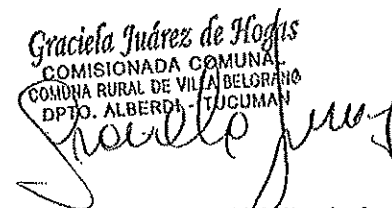 Graciela Juárez de Hogas
COMISIONADA COMUNAL
COMUNA RURAL DE VILLA BELGRANO
DPTO. ALBERDI - TUCUMAN